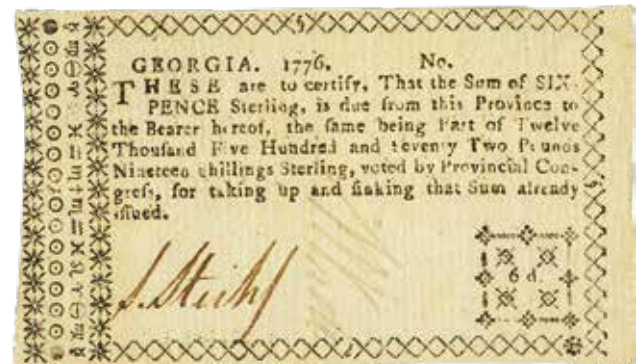 GEORGIA. 1776. No.
THESE are to certify, That the Sum of SIX-
PENCE Sterling, is due from this Province to
the Bearer hereof, the ſame being Part of Twelve
Thouſand Five Hundred and ſeventy Two Pounds
Nineteen ſhillings Sterling, voted by Provincial Con-
greſs, for taking up and ſinking that Sum already
iſſued.
6 d.